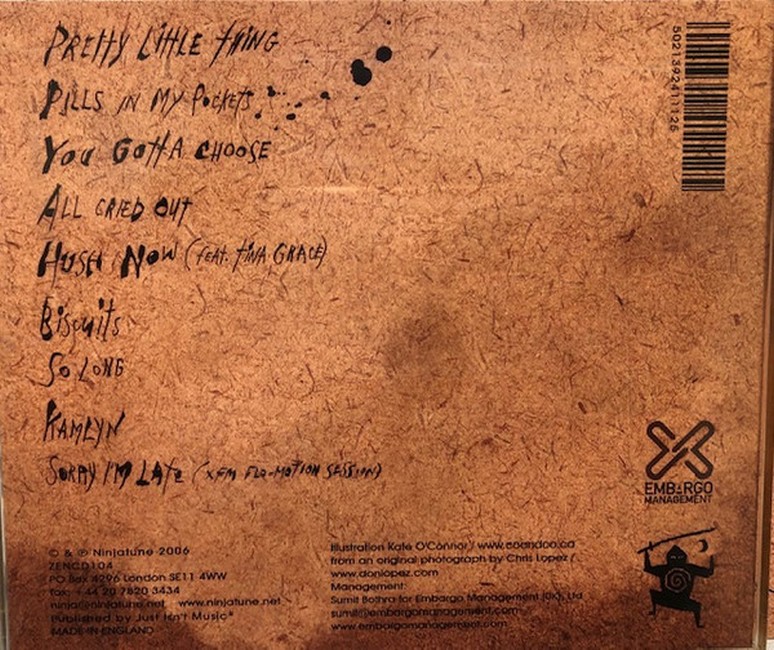 PRETTY LITTLE THING
PILLS IN MY POCKETS
YOU GOTTA CHOOSE
ALL CRIED OUT
HUSH NOW (FEAT. TINA GRACE)
BISCUITS
SO LONG
KAMLYN
SORRY I'M LATE (XFM FLO-MOTION SESSION)
5021392411125
EMBARGO
MANAGEMENT
© & ℗ Ninjatune 2006
ZENCD104
PO Box 4296 London SE11 4WW
fax: +44 20 7820 3434
ninja@ninjatune.net www.ninjatune.net
Published by Just Isn't Music*
MADE IN ENGLAND
Illustration Kate O'Connor / www.coandco.ca
from an original photograph by Chris Lopez /
www.donlopez.com
Management:
Sumit Bothra for Embargo Management (UK), Ltd
sumit@embargomanagement.com
www.embargomanagement.com